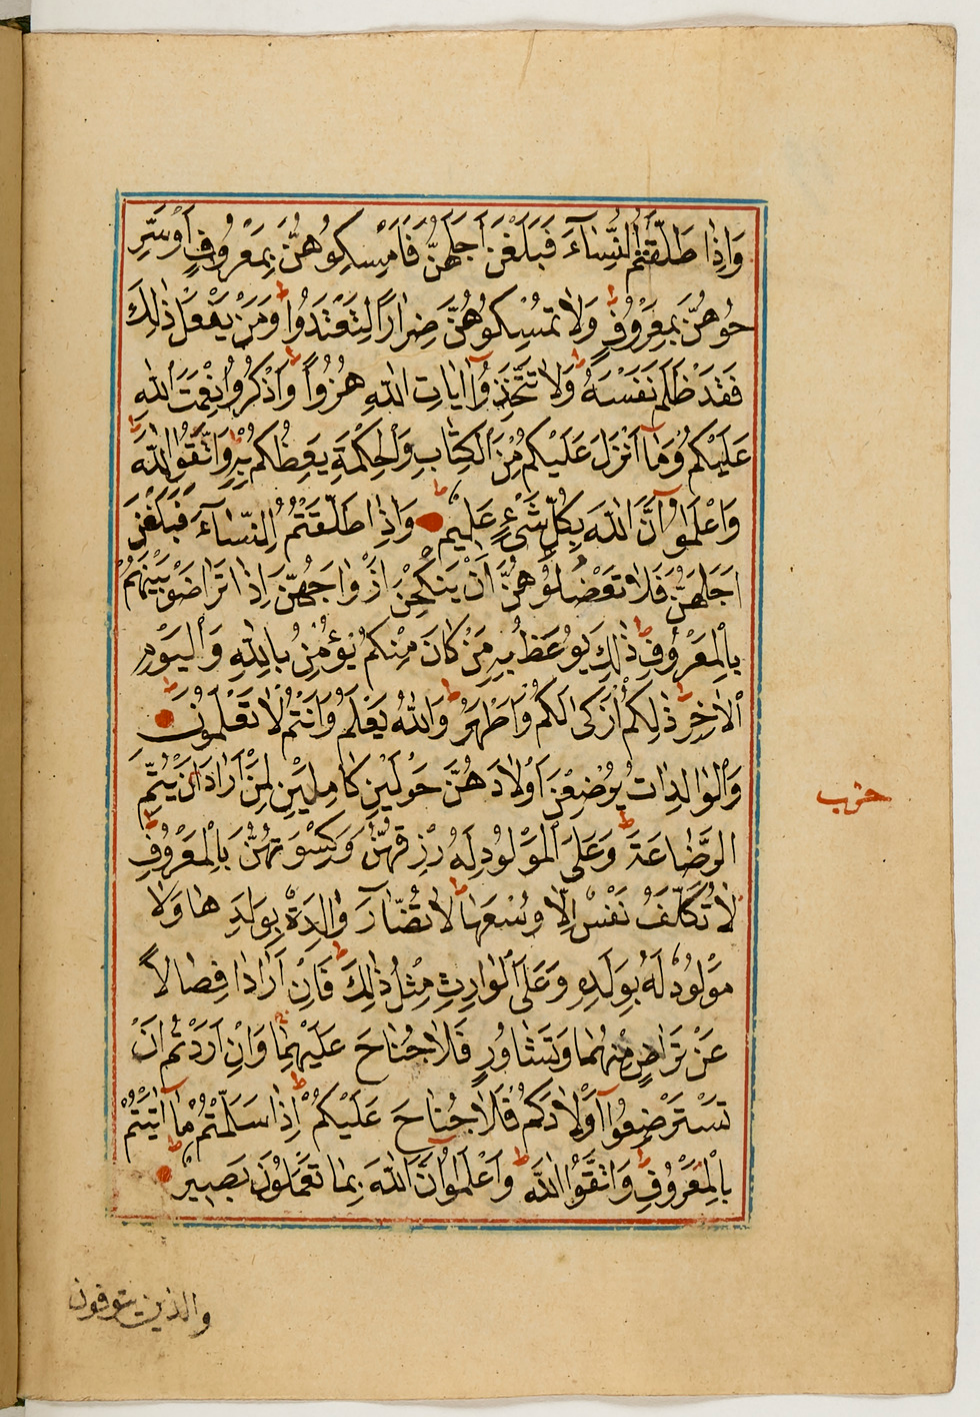 وَاِذَا طَلَّقْتُمُ النِّسَاءَ فَبَلَغْنَ اَجَلَهُنَّ فَاَمْسِكُوهُنَّ بِمَعْرُوفٍ اَوْ سَرِّ
حُوهُنَّ بِمَعْرُوفٍ ط وَلَا تُمْسِكُوهُنَّ ضِرَارًا لِتَعْتَدُوا ط وَمَنْ يَفْعَلْ ذٰلِكَ
فَقَدْ ظَلَمَ نَفْسَهُ ط وَلَا تَتَّخِذُوا اٰيَاتِ اللّٰهِ هُزُوًا ط وَاذْكُرُوا نِعْمَتَ اللّٰهِ
عَلَيْكُمْ وَمَا اَنْزَلَ عَلَيْكُمْ مِنَ الْكِتَابِ وَالْحِكْمَةِ يَعِظُكُمْ بِهِ ط وَاتَّقُوا اللّٰهَ ط
وَاعْلَمُوا اَنَّ اللّٰهَ بِكُلِّ شَيْءٍ عَلِيمٌ ط وَاِذَا طَلَّقْتُمُ النِّسَاءَ فَبَلَغْنَ
اَجَلَهُنَّ فَلَا تَعْضُلُوهُنَّ اَنْ يَنْكِحْنَ اَزْوَاجَهُنَّ اِذَا تَرَاضَوْا بَيْنَهُمْ
بِالْمَعْرُوفِ ط ذٰلِكَ يُوعَظُ بِهِ مَنْ كَانَ مِنْكُمْ يُؤْمِنُ بِاللّٰهِ وَالْيَوْمِ
الْاٰخِرِ ط ذٰلِكُمْ اَزْكٰى لَكُمْ وَاَطْهَرُ ط وَاللّٰهُ يَعْلَمُ وَاَنْتُمْ لَا تَعْلَمُونَ ط
وَالْوَالِدَاتُ يُرْضِعْنَ اَوْلَادَهُنَّ حَوْلَيْنِ كَامِلَيْنِ لِمَنْ اَرَادَ اَنْ يُتِمَّ
حزب
الرَّضَاعَةَ ط وَعَلَى الْمَوْلُودِ لَهُ رِزْقُهُنَّ وَكِسْوَتُهُنَّ بِالْمَعْرُوفِ ط
لَا تُكَلَّفُ نَفْسٌ اِلَّا وُسْعَهَا ط لَا تُضَارَّ وَالِدَةٌ بِوَلَدِهَا وَلَا
مَوْلُودٌ لَهُ بِوَلَدِهِ وَعَلَى الْوَارِثِ مِثْلُ ذٰلِكَ ط فَاِنْ اَرَادَا فِصَالًا
عَنْ تَرَاضٍ مِنْهُمَا وَتَشَاوُرٍ فَلَا جُنَاحَ عَلَيْهِمَا وَاِنْ اَرَدْتُمْ اَنْ
تَسْتَرْضِعُوا اَوْلَادَكُمْ فَلَا جُنَاحَ عَلَيْكُمْ اِذَا سَلَّمْتُمْ مَا اٰتَيْتُمْ
بِالْمَعْرُوفِ ط وَاتَّقُوا اللّٰهَ ط وَاعْلَمُوا اَنَّ اللّٰهَ بِمَا تَعْمَلُونَ بَصِيرٌ ط
والذين يتوفون